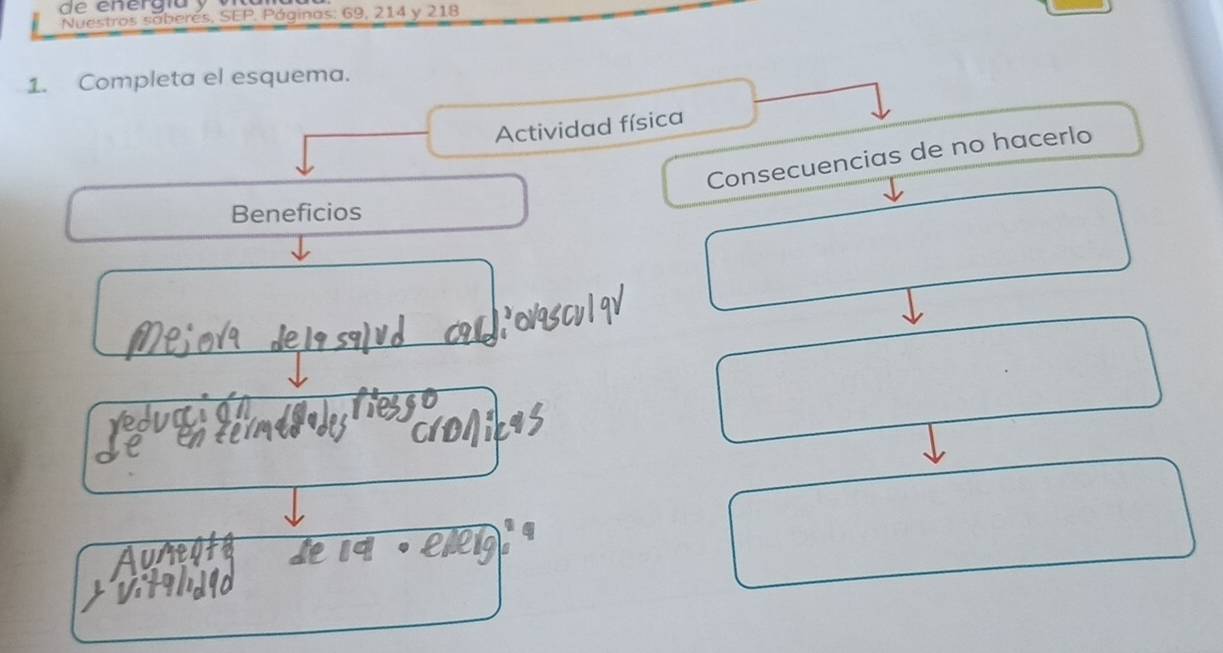 de energía y
Nuestros saberes, SEP. Páginas: 69, 214 y 218
1. Completa el esquema.
Actividad física
Consecuencias de no hacerlo
Beneficios
Mejora dela salud cardiovascular
reducción riesgo
de enfermedades cronicas
Aumenta de la energia
y vitalidad